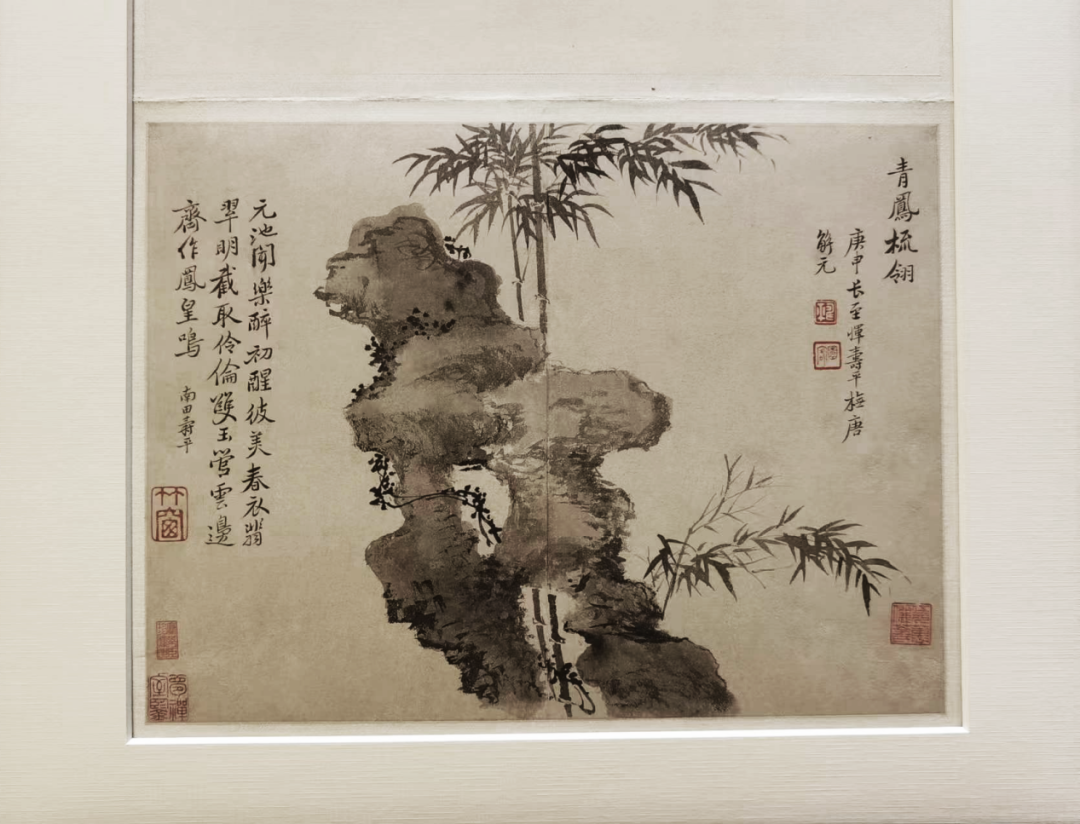 青鳳梳翎
庚申长至惲壽平橅唐
解元
元池聞樂醉初醒彼美春衣翡
翆明截取伶倫雙玉管雲邊
齊作鳳皇鳴
南田壽平
竹窗